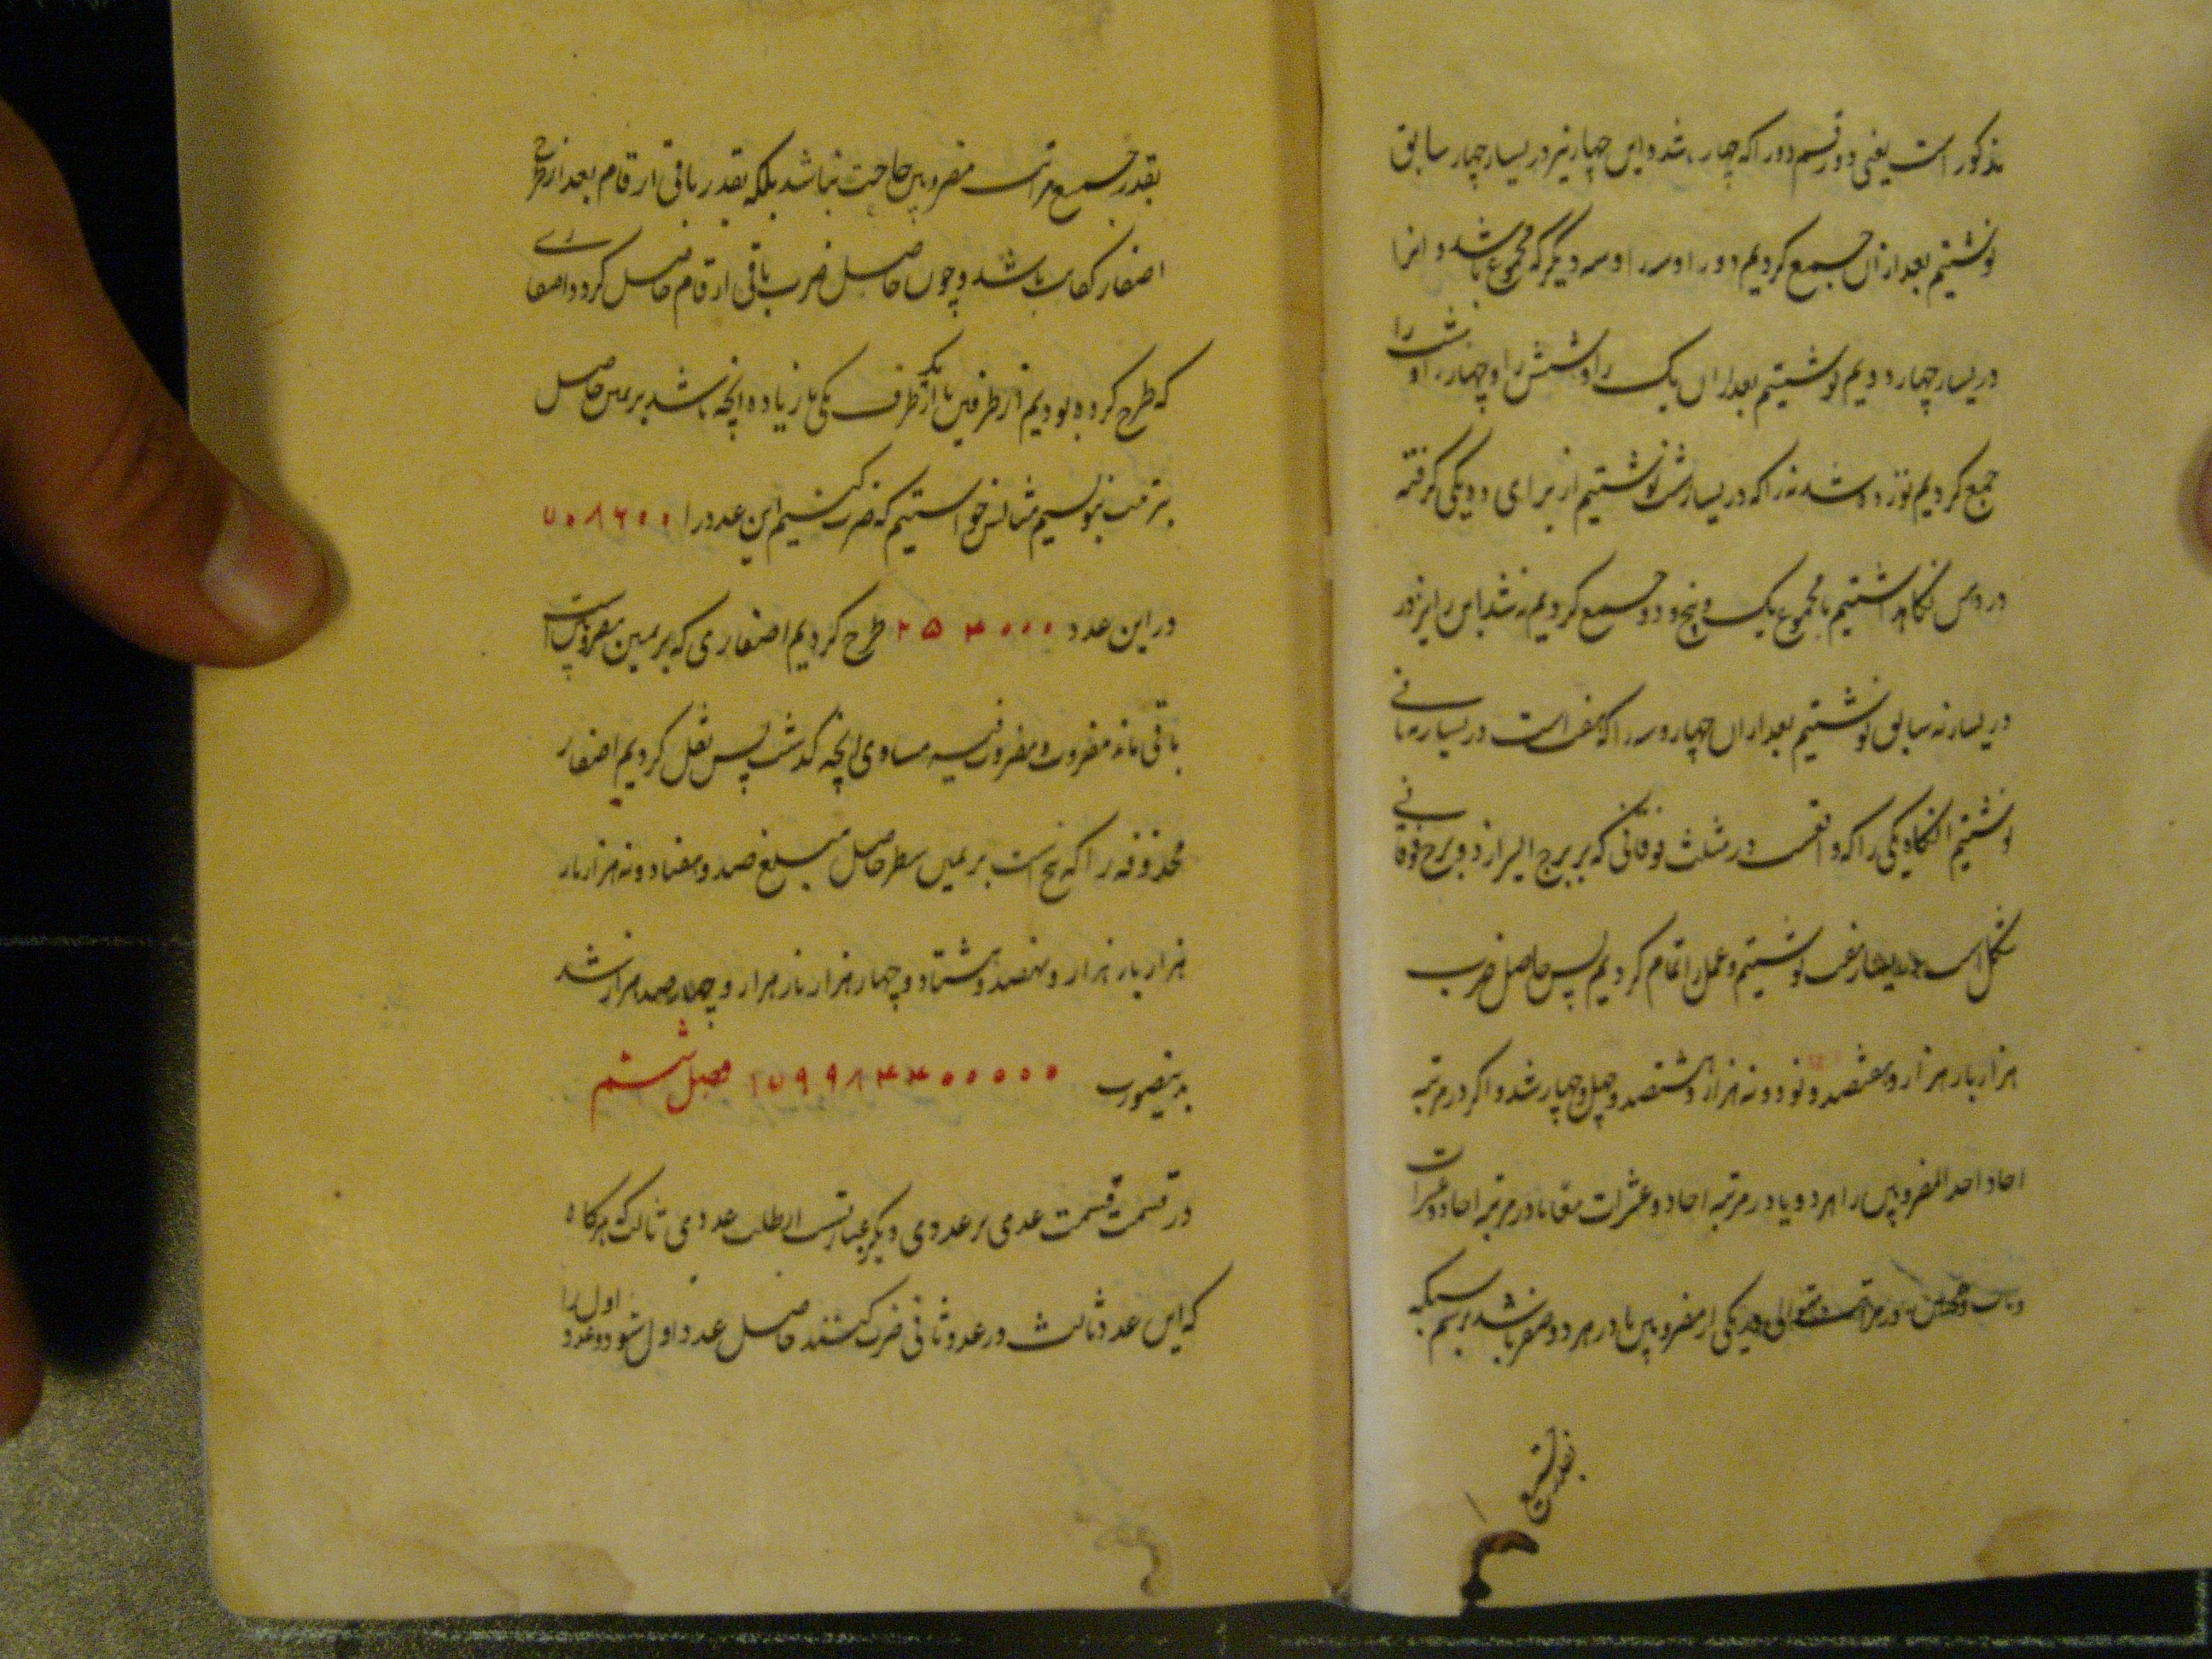 مذکور است یعنی دو در قسم دو را که چهار شد و این چهار نیز در یسار چهار سابق
نوشتیم بعد ازان جمع کردیم دو را و سه را و سه دیگر که مجموع باشد و انرا
در یسار چهار دویم نوشتیم بعد ازان یک را و شش را و چهار را و شش را
جمع کردیم نوزده شد نه را که در یسارش نوشتیم از برای ده یکی گرفته
در ذهن نگاه داشتیم با مجموع یک و پنج و دو جمع کردیم نه شد این را نیز در
در یسار نه سابق نوشتیم بعد ازان چهار و سه را که هفت است در یسار نه ثانی
نوشتیم انگاه یکی را که واقعست در مثلث فوقانی که بر برج ایسر از دو برج فوقانی
شکل است در یسار هفت نوشتیم و عمل را تمام کردیم پس حاصل ضرب
هزار بار هزار و هفتصد و نود و نه هزار و هشتصد و چهل و چهار شد و اگر در مرتبه
احاد احد المضروبین یا هر دو یا در مرتبه احاد و عشرات معا یا در مرتبه احاد و عشرات
متوالی در یکی از مضروبین یا در هر دو صفر باشد برسم شبکه
بقدر جمیع
بقدر جمیع مراتب مضروبین حاجت نباشد بلکه بقدر باقی ارقام بعد از طرح
اصفار کفایت باشد و چون حاصل ضرب باقی ارقام حاصل کردد اصفاری
که طرح کرده بودیم از طرفین یا از طرف یکی یا زیاده انچه باشد بر یمین حاصل
بترتیب بنویسیم مثالش خواستیم که ضرب کنیم این عدد را ۷۰۸۶۰۰
در این عدد ۲۵۴۰۰۰ طرح کردیم اصفاری که بر یمین مضروبین است
باقی ماند مضروب و مضروب فیه مساوی انچه کذشت پس نقل کردیم اصفار
محذوفه را که پنج است بر یمین سطر حاصل مبلغ صد و هفتاد و نه هزار بار
هزار بار هزار و نهصد و هشتاد و چهار هزار بار هزار و چهارصد هزار شد
بدینصورت ۱۷۹۹۸۴۴۰۰۰۰۰ فصل ششم
در قسمت قسمت عددی بر عددی دیکر عبارتست از طلب عددی ثالث که هرکاه
که این عدد ثالث در عدد ثانی ضرب کنند حاصل عدد اول شود و عدد اول را